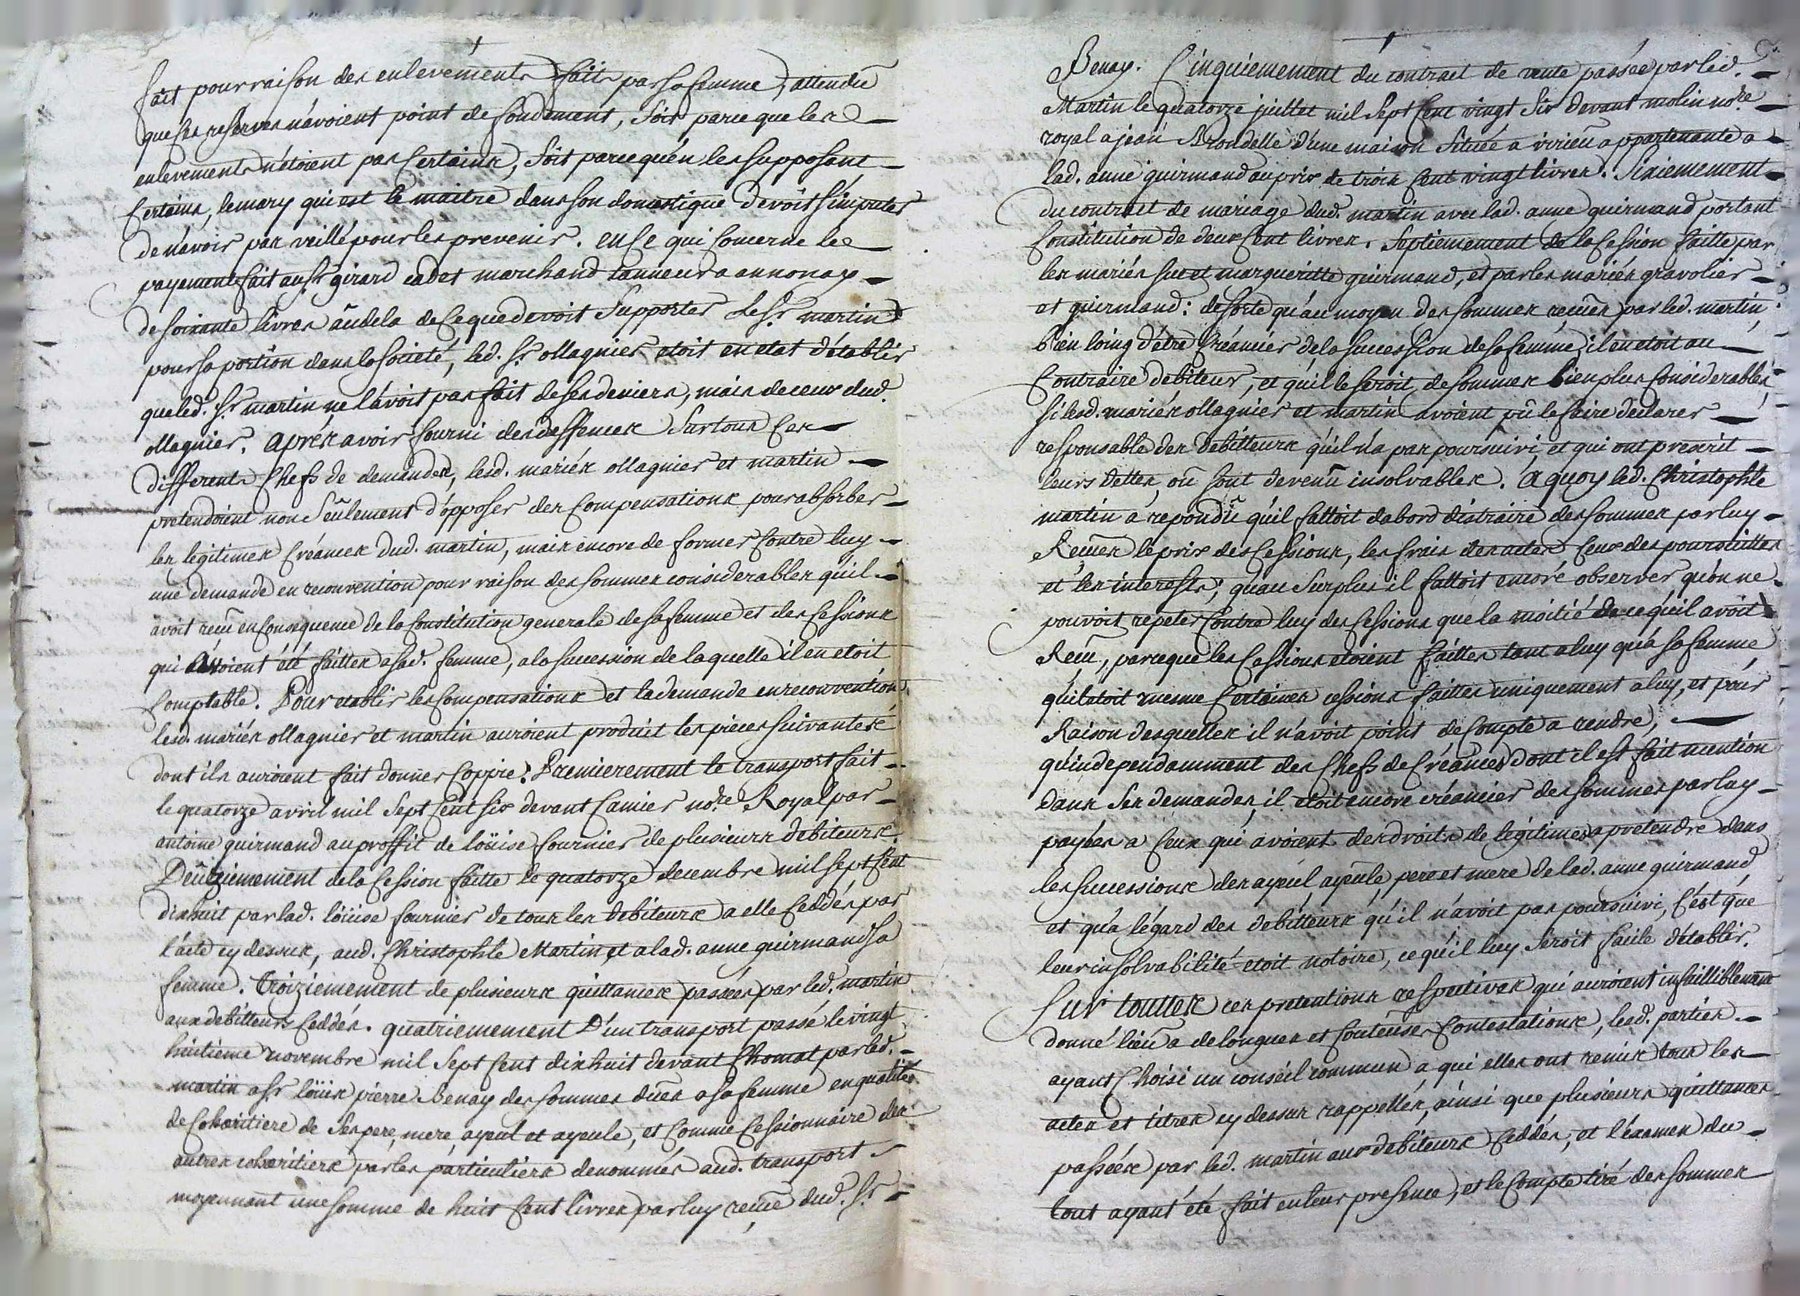 fait pour raison des enlevements faits par sa femme, attendu
que ses reserves n'avoient point de fondement, soit parce que les
enlevements n'étoient pas Certains, soit parce qu'en les supposant
Certains, le mary qui est le maitre dans son domestique devoit s'imputer
de n'avoir pas veillé pour les prevenir. en Ce qui Concerne le
payement fait au sr. girard cadet marchand tanneur a annonay
de soixante livres au dela de Ce que devoit supporter le Sr. martin
pour sa portion dans la société, led. sr. ollagnier etoit en etat d'établir
que led. sr. martin ne l'avoit pas fait de ses deniers, mais de ceux dud.
ollagnier. aprés avoir fourni des deffences sur tous Ces
differents Chefs de demandes, lesd. mariés ollagnier et martin
pretendoient non seulement d'opposer des Compensations pour absorber
les legitimes Créances dud. martin, mais encore de former Contre luy
une demande en reconvention pour raison des sommes considerables qu'il
avoit reçu en Consequence de la Constitution generale de sa femme et des Cessions
qui avoient été faittes a sad. femme, a la succession de la quelle il en etoit
Comptable. Pour etablir les Compensations et la demande en reconvention
lesd. mariés ollagnier et martin auroient produit les pieces suivantes
dont ils auroient fait donner Coppie. Premierement le transport fait
le quatorze avril mil sept Cent six devant Camier nore. Royal par
antoine guirmand au proffit de loüise fournier de plusieurs debiteurs.
Deuziemement de la Cession faitte le quatorze decembre mil sept Cent
dixhuit par lad. loüise fournier de tous les debiteurs a elle Ceddés par
l'acte cy dessus, aud. Christophle Martin et a lad. anne guirmand sa
femme. troiziemement de plusieurs quittances passées par led. martin
aux debitteurs Ceddés. quatriemement D'un transport passé le vingt
huitieme novembre mil sept Cent dixhuit devant Chomat par led.
martin a sr. loüis pierre Benay des sommes dües a sa femme en qualité
de Coheritiere de ses pere, mere, ayeul et ayeule, et Comme Cessionnaire des
autres coheritiers par les particuliers denommés aud. transport
moyennant une somme de huit Cent livres par luy reçue dud. sr.
Benay. Cinquiemement du contract de vente passée par led.
Martin le quatorze juillet mil sept Cent vingt six devant molin nore.
royal a jean Brondelle d'une maison située a virieu appartenante a
lad. anne guirmand au prix de trois Cent vingt livres. Sixiemement
du contract de mariage dud. martin avec lad. anne guirmand portant
Constitution de deux Cent livres. Septiemement de la Cession faitte par
les mariés suc et margueritte guirmand, et par les mariés gravolier
et guirmand: de sorte qu'au moyen des sommes reçues par led. martin
bien loing d'étre Créancier de la succession de sa femme, il en etoit au
Contraire debiteur, et qu'il le seroit de sommes bien plus Considerables,
si lesd. mariés ollagnier et martin avoient pu le faire declarer
responsable des debitteurs qu'il n'a pas poursuivi, et qui ont prescrit
leurs dettes, ou sont devenu insolvables. a quoy led. Christophle
martin a repondu qu'il falloit dabord distraire des sommes par luy
Reçues le prix des Cessions, les frais des actes, Ceux des poursuittes
et les interests; qu'au surplus il falloit encore observer qu'on ne
pouvoit repeter Contre luy des Cessions que la moitié de ce qu'il avoit
Reçu, parceque les Cessions etoient faittes tant a luy qu'a sa femme
qu'il etoit mesme Certaines cessions faittes uniquement a luy, et pour
Raison desquelles il n'avoit point de Compte a rendre,
qu'independamment des Chefs de Créances dont il est fait mention
dans ses demandes, il etoit encore créancier des sommes par luy
payées a Ceux qui avoient des droits de legitimes a pretendre dans
les successions des ayeul ayeule, pere et mere de lad. anne guirmand
et qu'a l'égard des debitteurs qu'il n'avoit pas poursuivi, C'ést que
leur insolvabilité etoit notoire, ce qu'il luy seroit facile d'établir.
Sur touttes ces pretentions respectives qui auroient infailliblement
donné lieu a de longues et Couteuses Contestations, lesd. parties
ayant Choisi un conseil commun a qui elles ont remis tous les
actes et titres cy dessus rappellés, ainsi que plusieurs quittances
passées par led. martin aux debiteurs Ceddés, et l'éxamen du
tout ayant été fait en leur presence, et le Compte tiré des sommes